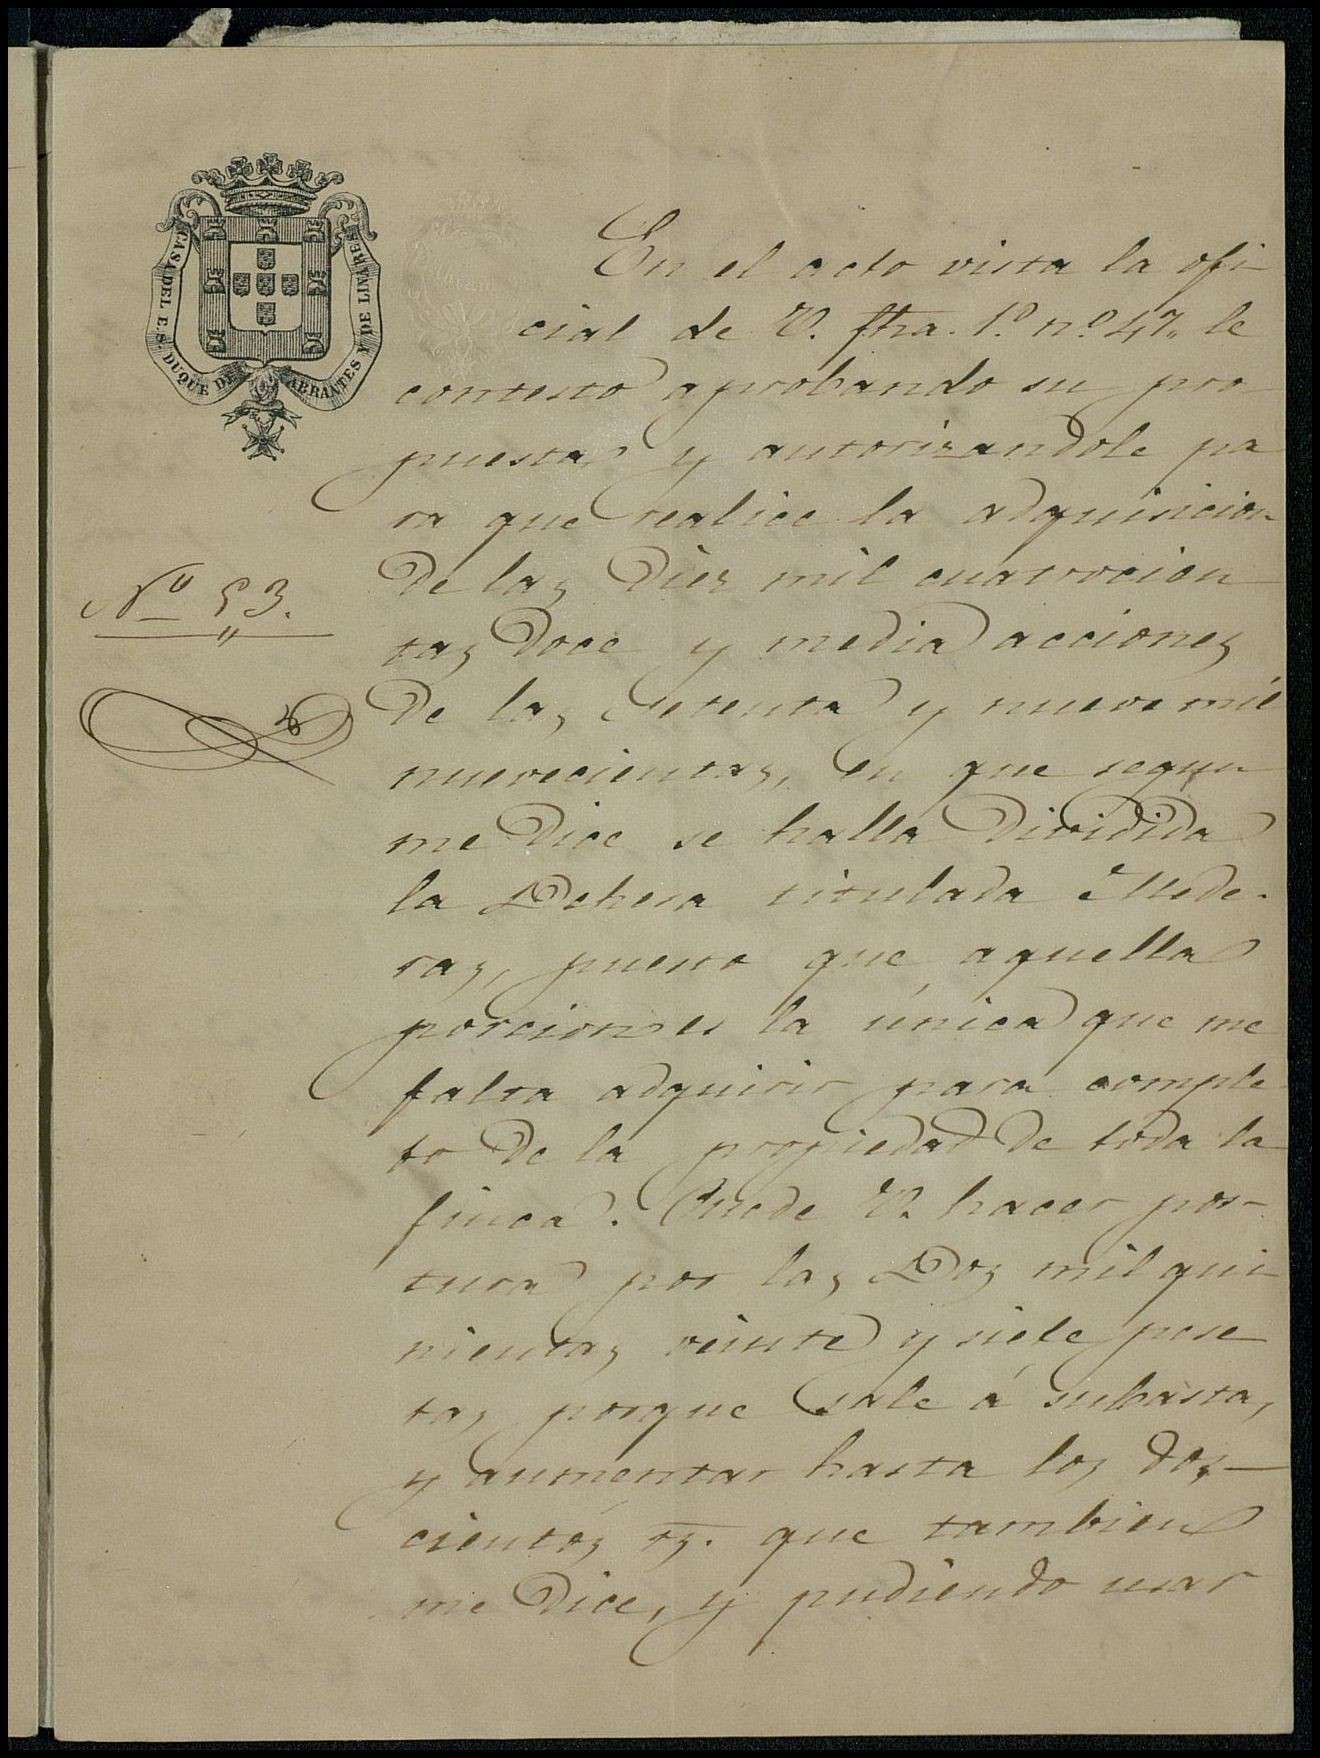 CASA DEL E. S. DUQUE DE ABRANTES Y DE LINARES
En el acto vista la ofi-
cial de V. fha. 1º nº 47,, le
contesto aprobando su pro
puesta y autorizandole pa
ra que realice la adquisicion
de las diez mil cuatrocien
tas doce y media acciones
Nº 53.
de las setenta y nueve mil
nuevecientas, en que segun
me dice se halla dividida
la Dehesa titulada Mede-
ras, puesto que aquella
porcion es la única que me
falta adquirir para comple
to de la propiedad de toda la
finca. Puede V. hacer pos-
tura por las Dos mil qui-
nientas veinte y siete pese
tas porque sale á subasta,
y aumentar hasta los dos-
cientos rs. que tambien
me dice, y pudiendo usar